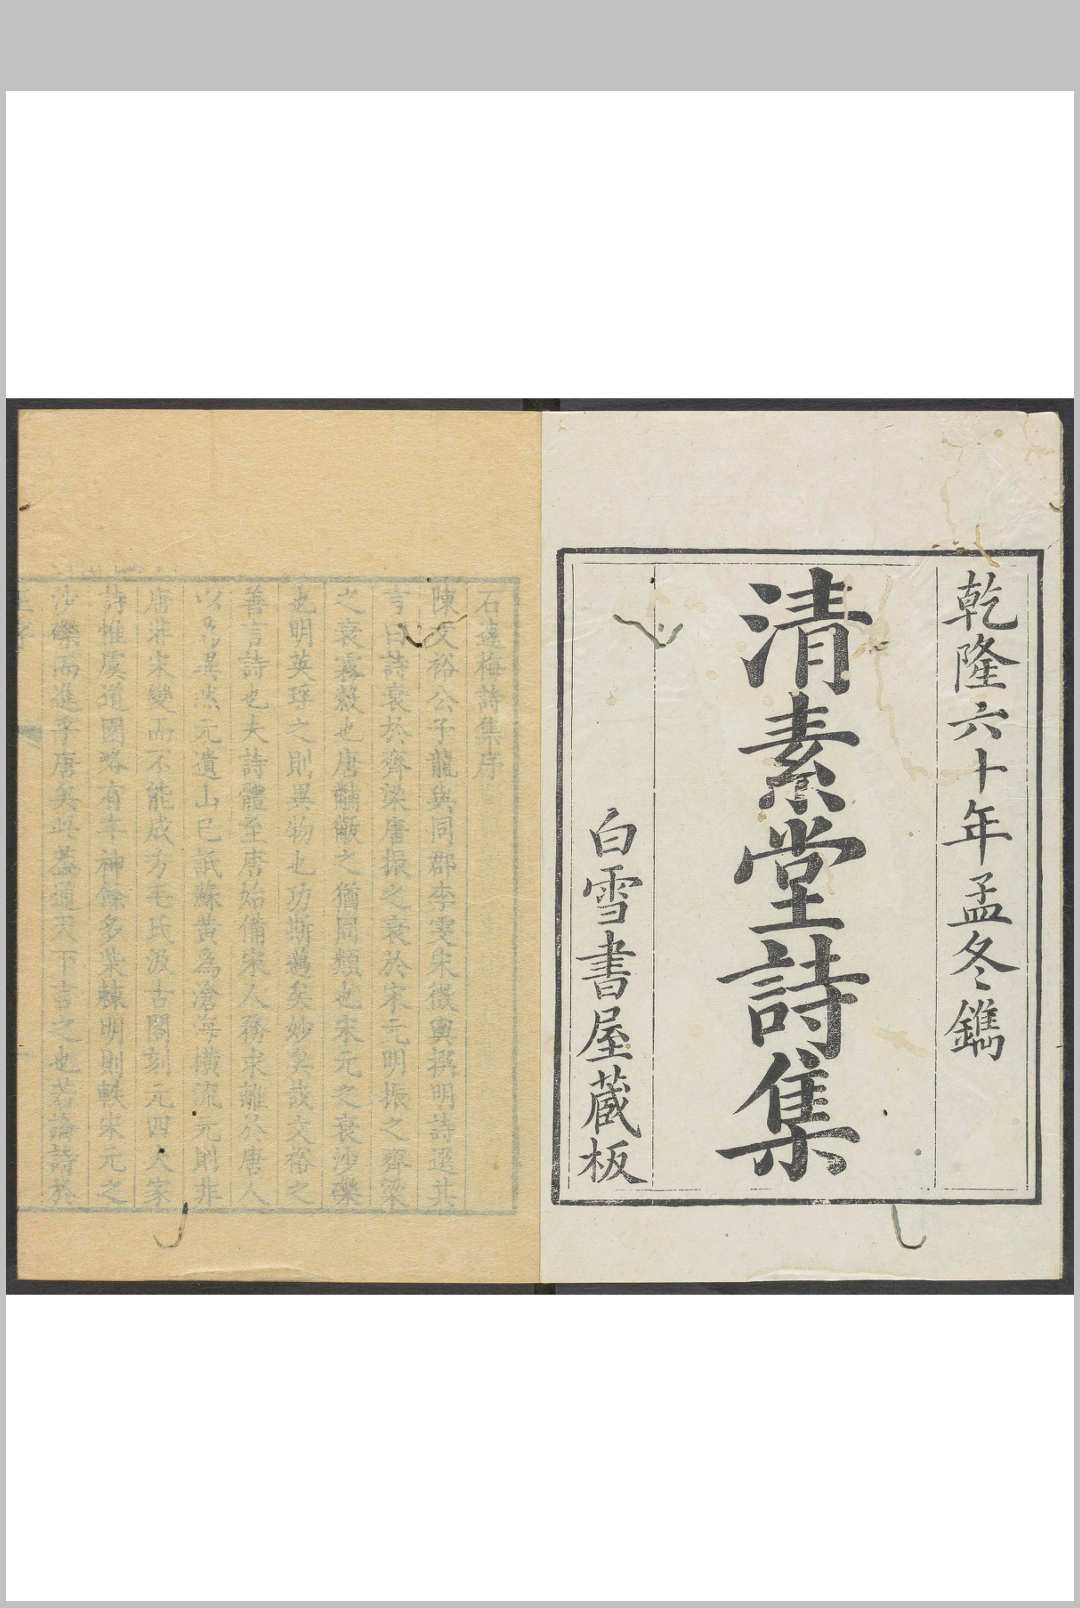 乾隆六十年孟冬鐫
清素堂詩集
白雪書屋蔵板
石遠梅詩集序
陳文裕公子龍與同郡李雯宋徵輿撰明詩選其
言曰詩衰於齊梁唐振之衰於宋元明振之齊梁
之衰霧縠也唐黼黻之猶同類也宋元之衰沙礫
也明英瑤之則異物也功斯邁矣妙矣哉文裕之
善言詩也夫詩體至唐始備宋人務求離於唐人
以為異然元遺山已詆蘇黃為滄海橫流元則非
唐非宋變而不能成方毛氏汲古閣刻元四大家
詩惟虞道園略有本神餘多柴棘明則軼宋元之
沙礫而進乎唐矣此蓋通天下言之也若論詩於